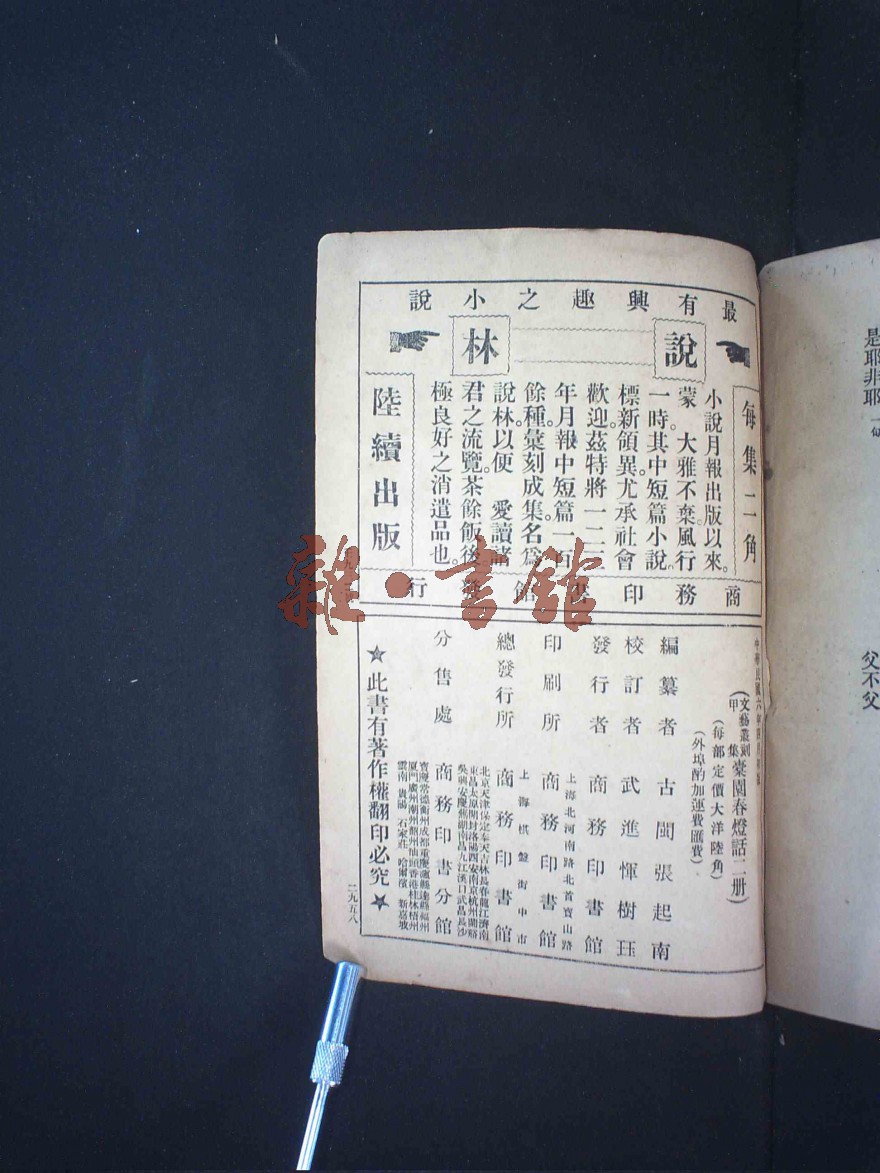 最有興趣之小說
說林
每集二角
小說月報出版以來。
蒙。大雅不棄風行
一時其中短篇小說。
標新領異尤承社會
歡迎。茲特將一二三
年月報中短篇一百
餘種。彙刻成集。名爲
說林以便 愛讀諸
君之流覽。茶餘飯後。
極良好之消遣品也。
陸續出版
商務印書館發行
中華民國六年
(文藝叢刻甲集橐園春燈話二册)
(每部定價大洋陸角)
(外埠酌加運費匯費)
編纂者 古閩張起南
校訂者 武進惲樹珏
發行者 商務印書館
上海北河南路北首寶山路
印刷所 商務印書館
上海棋盤街中市
總發行所 商務印書館
北京天津保定奉天吉林長春龍江濟南
東昌太原開封洛陽西安南京杭州蘭谿
吳興安慶蕪湖南昌九江漢口武昌長沙
分售處 商務印書分館
寶慶常德衡州成都重慶瀘縣達縣福州
廈門廣州潮州韶州汕頭香港桂林梧州
雲南 貴陽 石家莊 哈爾濱 新嘉坡
★此書有著作權翻印必究★
二九五八
是耶非耶 一句
父不父
雜·書館